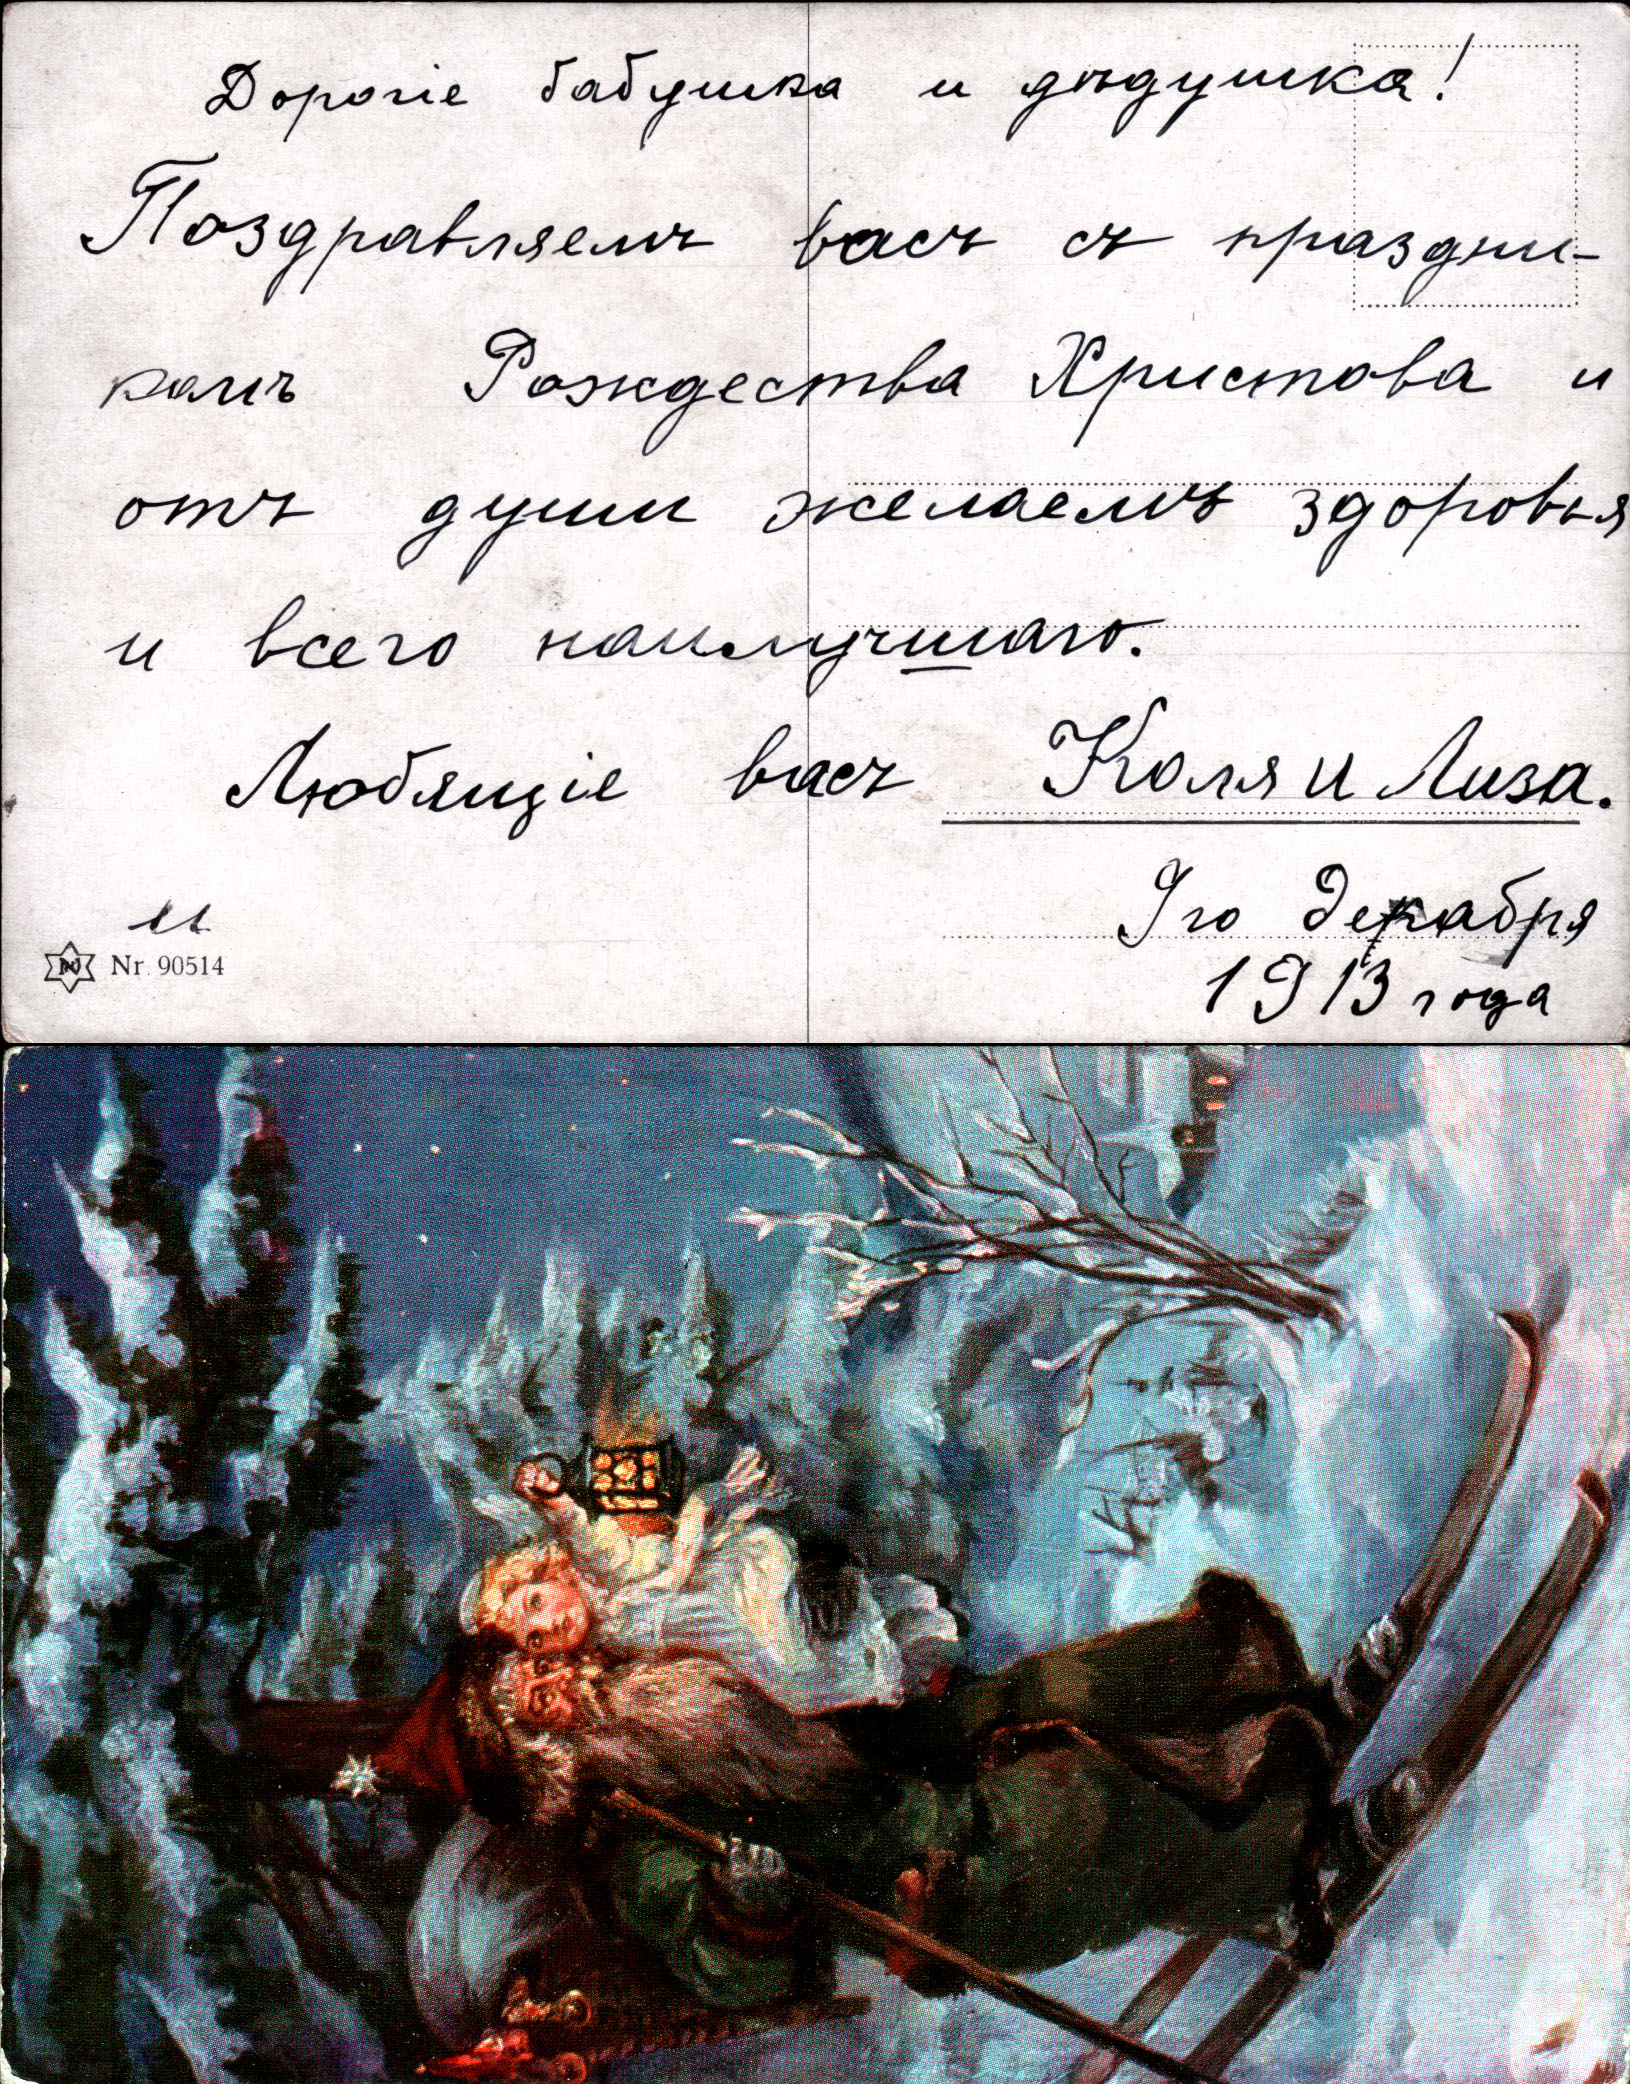 Дорогіе бабушка и дѣдушка!
Поздравляемъ васъ съ праздни-
комъ Рождества Христова и
отъ души желаемъ здоровья
и всего наилучшаго.
Любящіе васъ Коля и Лиза.
9го декабря
1913 года
Nr. 90514